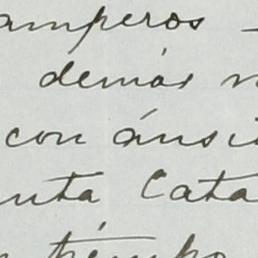 amperos
demás
con ánsi
nta Cata
tiempo